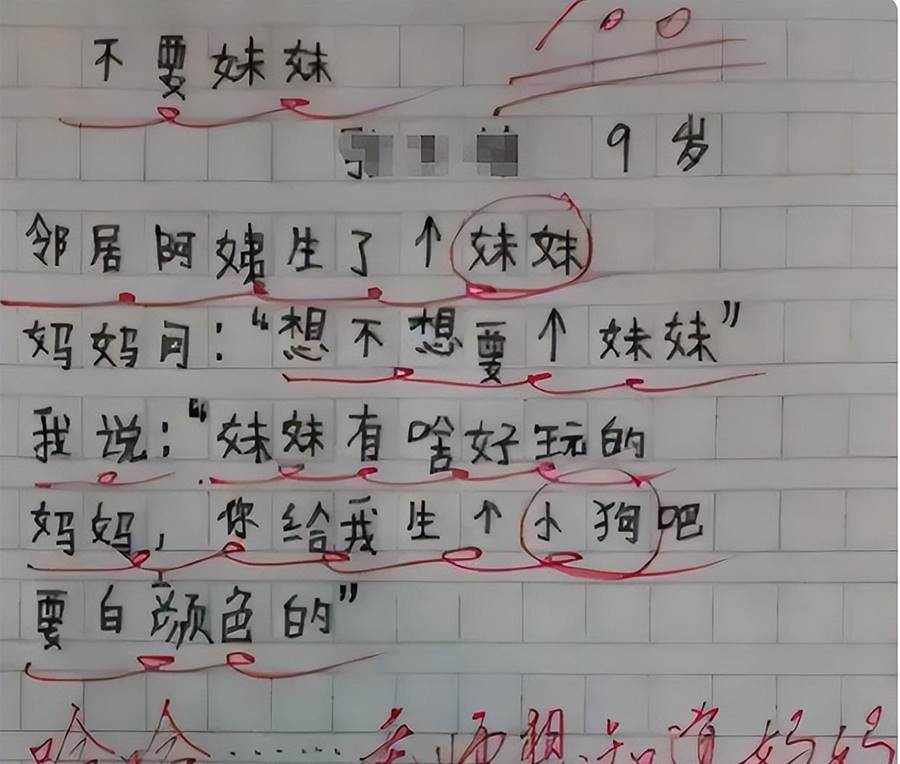 不要妹妹
100
9岁
邻居阿姨生了个妹妹
妈妈问：“想不想要个妹妹”
我说：“妹妹有啥好玩的
妈妈，你给我生个小狗吧
要白颜色的”
哈哈……老师想知道妈妈